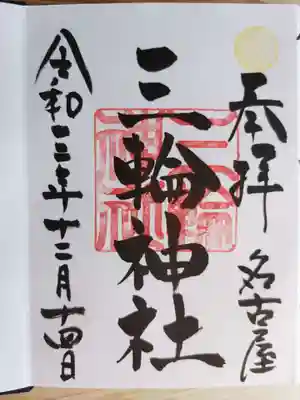 奉拝 名古屋
三輪神社
令和二年十二月十四日